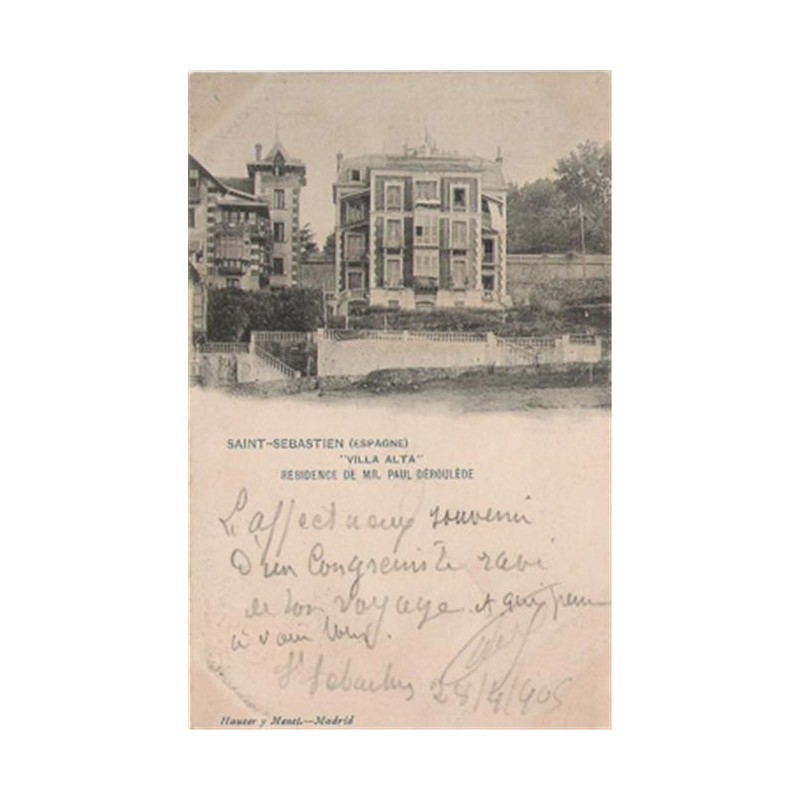 SAINT-SEBASTIEN (ESPAGNE)
"VILLA ALTA"
RESIDENCE DE MR. PAUL DÉROULÈDE
L'affectueux souvenir
D'un Congressiste ravi
de son voyage et qui pense
à vous tous.
St Sebastien 28/4/905
Hauser y Menet.—Madrid